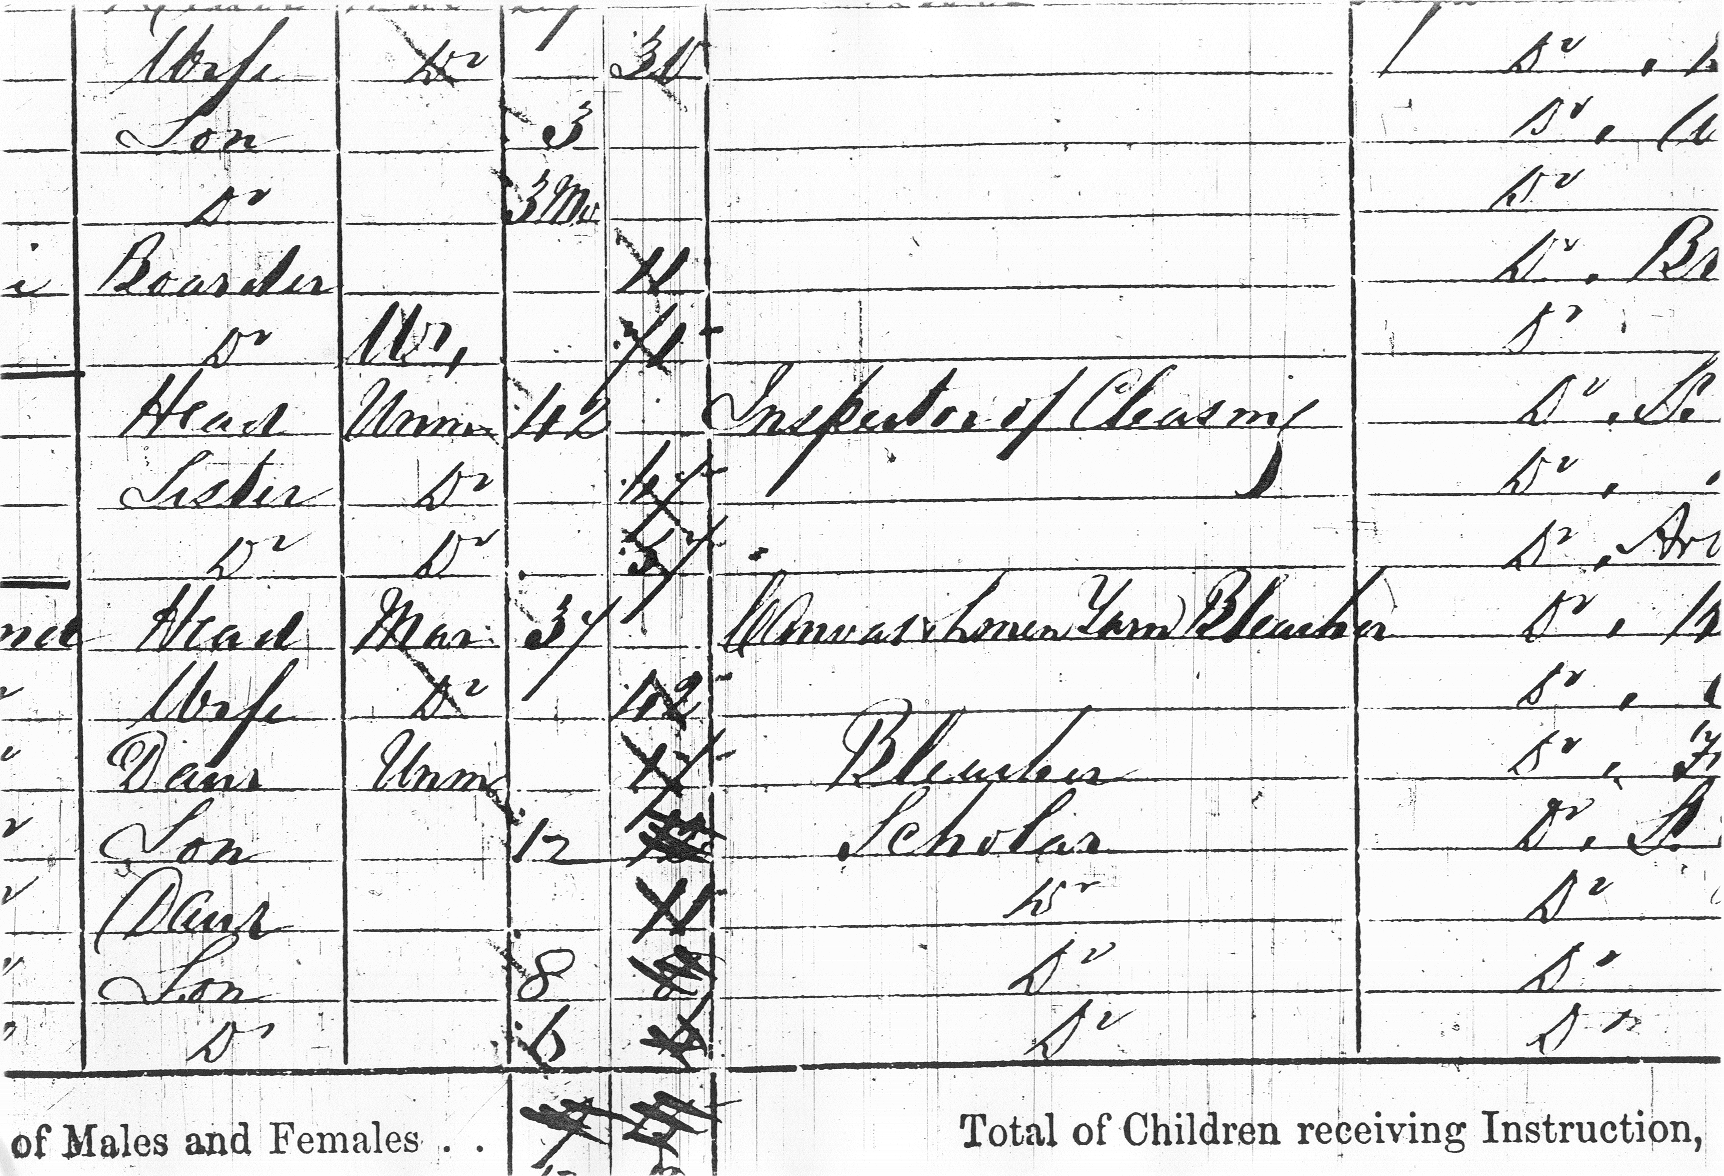 Wife Do 30 Do
Son 3 Do
Do 3Mo Do
Boarder 11 Do Br
Do Wr, 71 Do
Head Unm 42 Inspector of Cleasing Do
Sister Do 47 Do
Do Do 57 Do
Head Mar 37 Canvas & Linen Yarn Bleacher Do
Wife Do 42 Do
Daur Unm 17 Bleacher Do
Son 12 Scholar Do
Daur 11 Do Do
Son 8 Do Do
Do 6 Do Do
of Males and Females . . Total of Children receiving Instruction,